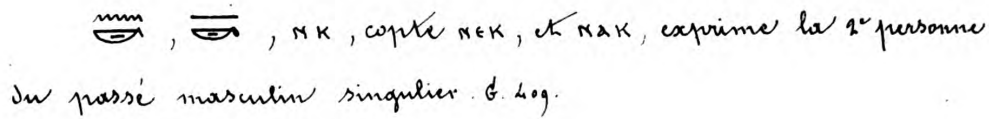 𓈖𓎡, 𓈖𓎡, ⲛⲕ, copte ⲛⲉⲕ, et ⲛⲁⲕ, exprime la 2e personne
du passé masculin singulier. G. 409.